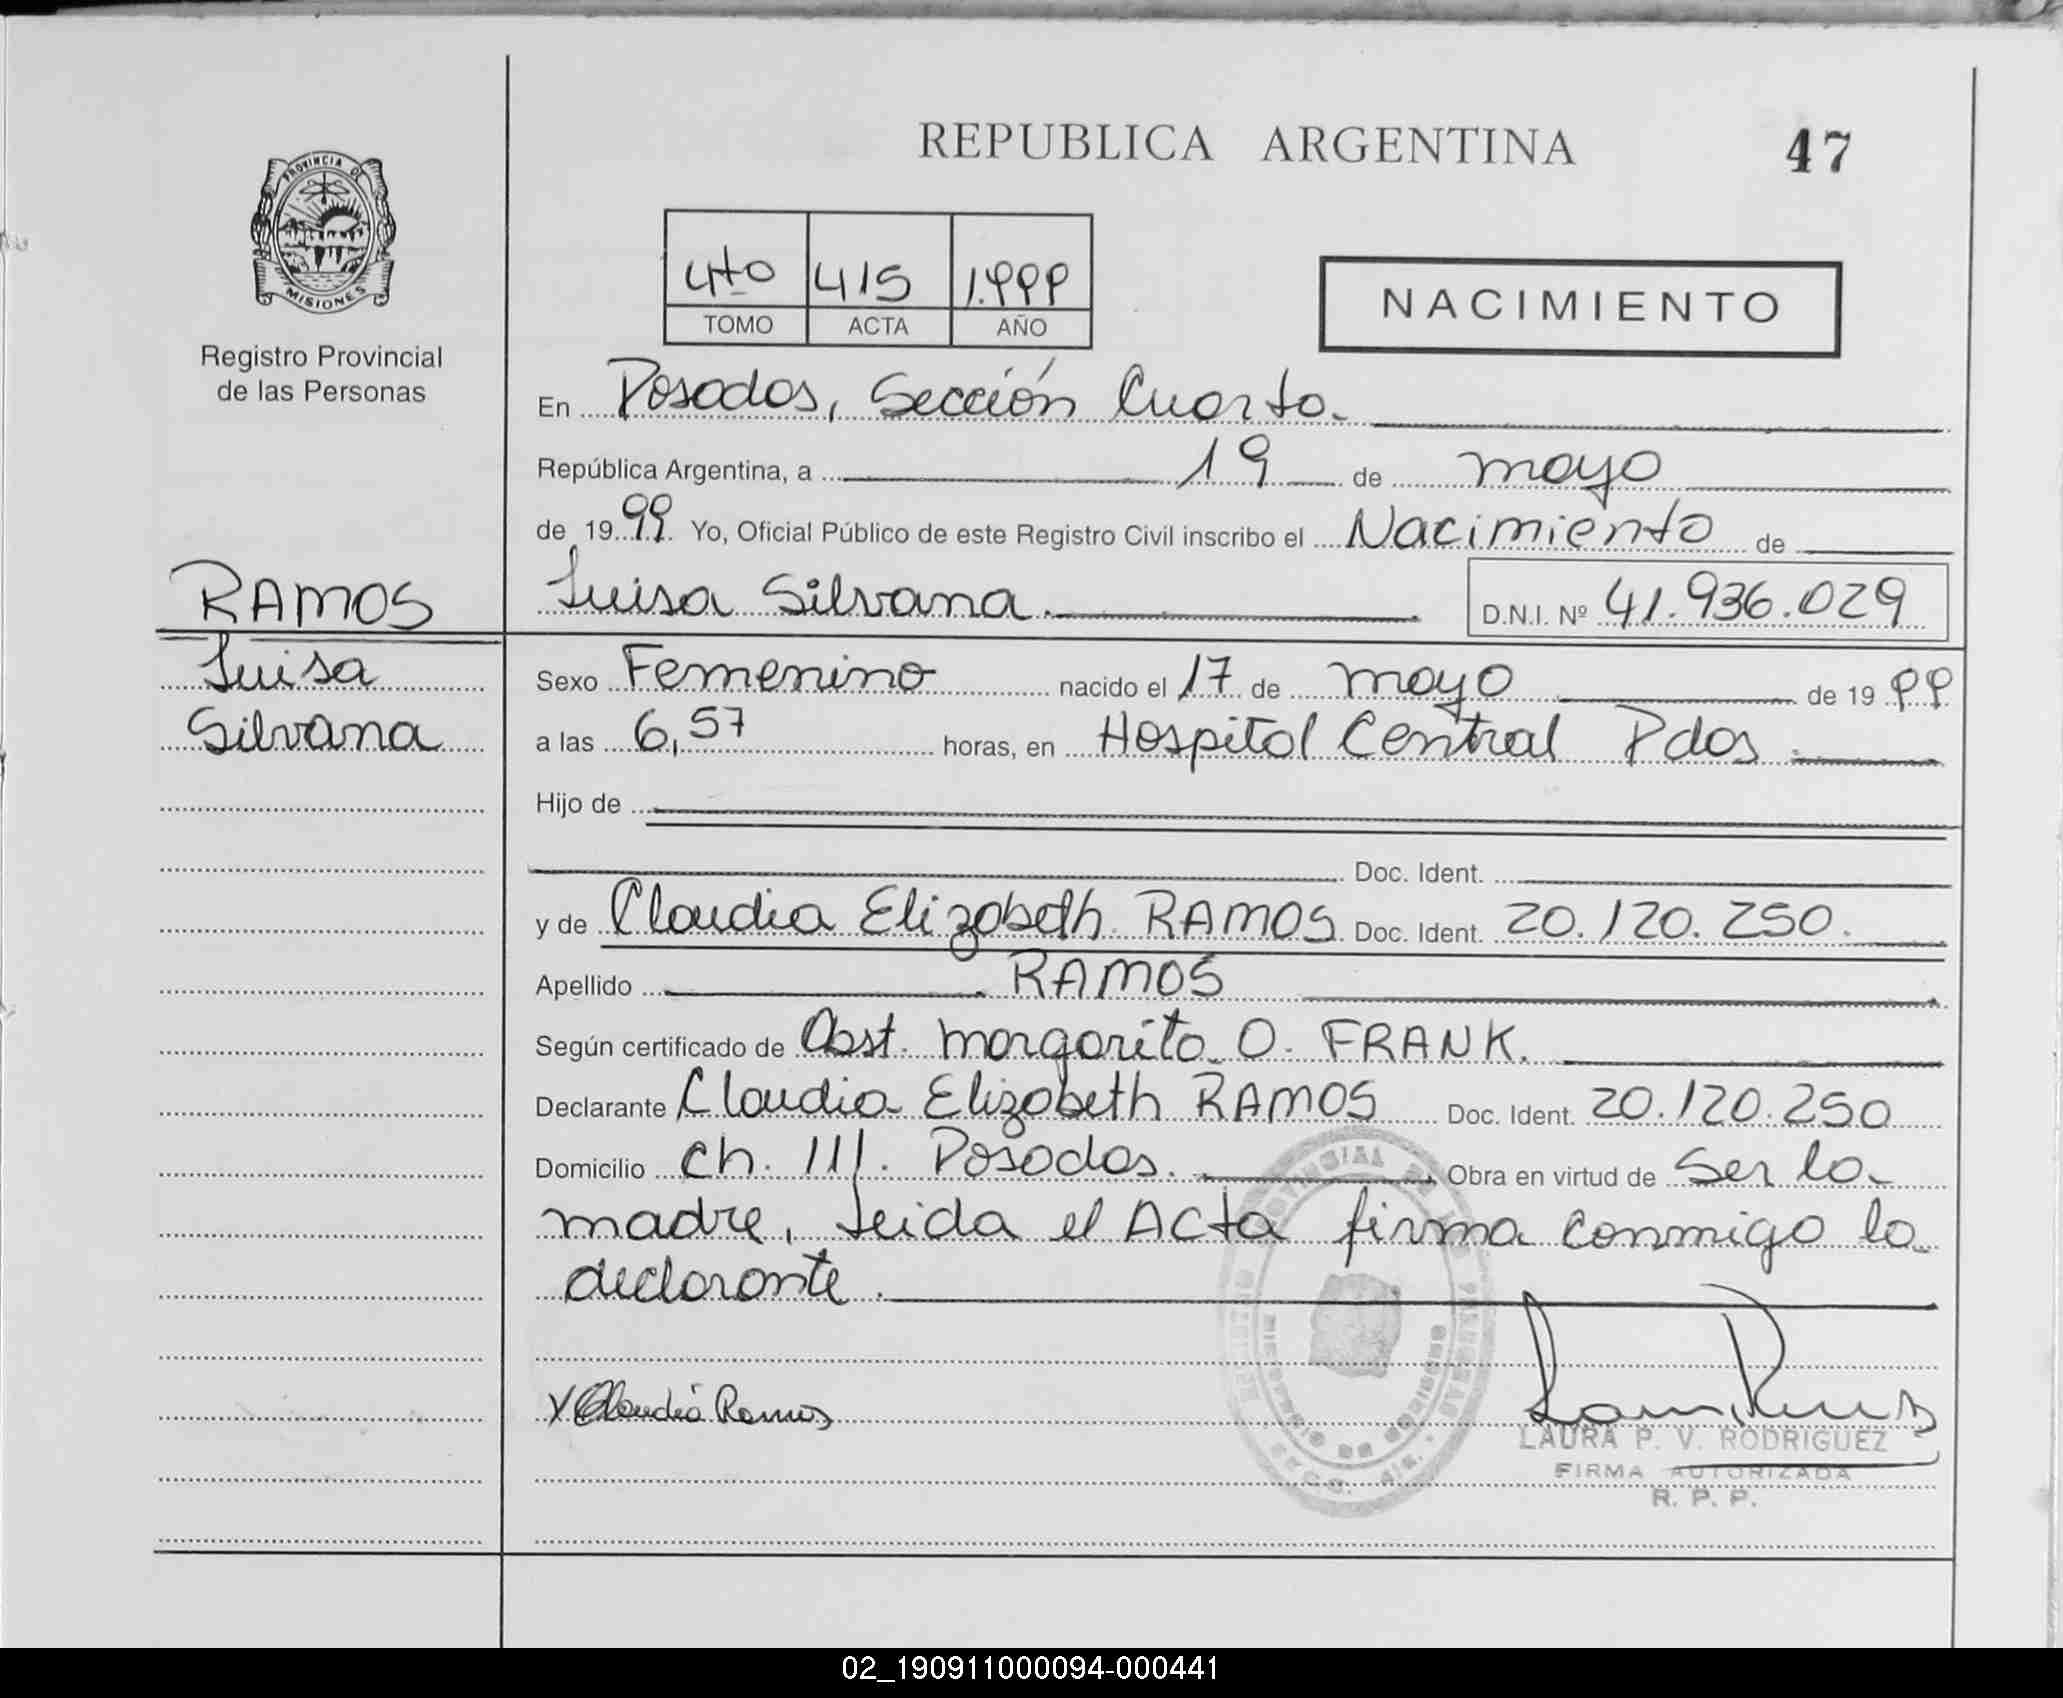 REPUBLICA ARGENTINA 47
PROVINCIA DE
MISIONES
Registro Provincial
de las Personas
4to 415 1.999
TOMO ACTA AÑO
NACIMIENTO
En Posadas, Sección Cuarta.
República Argentina, a 19 de mayo
de 1999. Yo, Oficial Público de este Registro Civil inscribo el Nacimiento de
RAMOS
Luisa Silvana. D.N.I. Nº 41.936.029
Luisa
Silvana
Sexo Femenino nacido el 17 de mayo de 1999
a las 6,57 horas, en Hospital Central Pdas
Hijo de
Doc. Ident.
y de Claudia Elizabeth RAMOS Doc. Ident. 20.120.250.
Apellido RAMOS
Según certificado de Obst. Margarita O. FRANK.
Declarante Claudia Elizabeth RAMOS Doc. Ident. 20.120.250
Domicilio Ch. 111. Posadas. Obra en virtud de Ser la
madre, Leida el Acta firma conmigo la
declarante.
X Claudia Ramos
LAURA P. V. RODRIGUEZ
FIRMA AUTORIZADA
R. P. P.
02_190911000094-000441